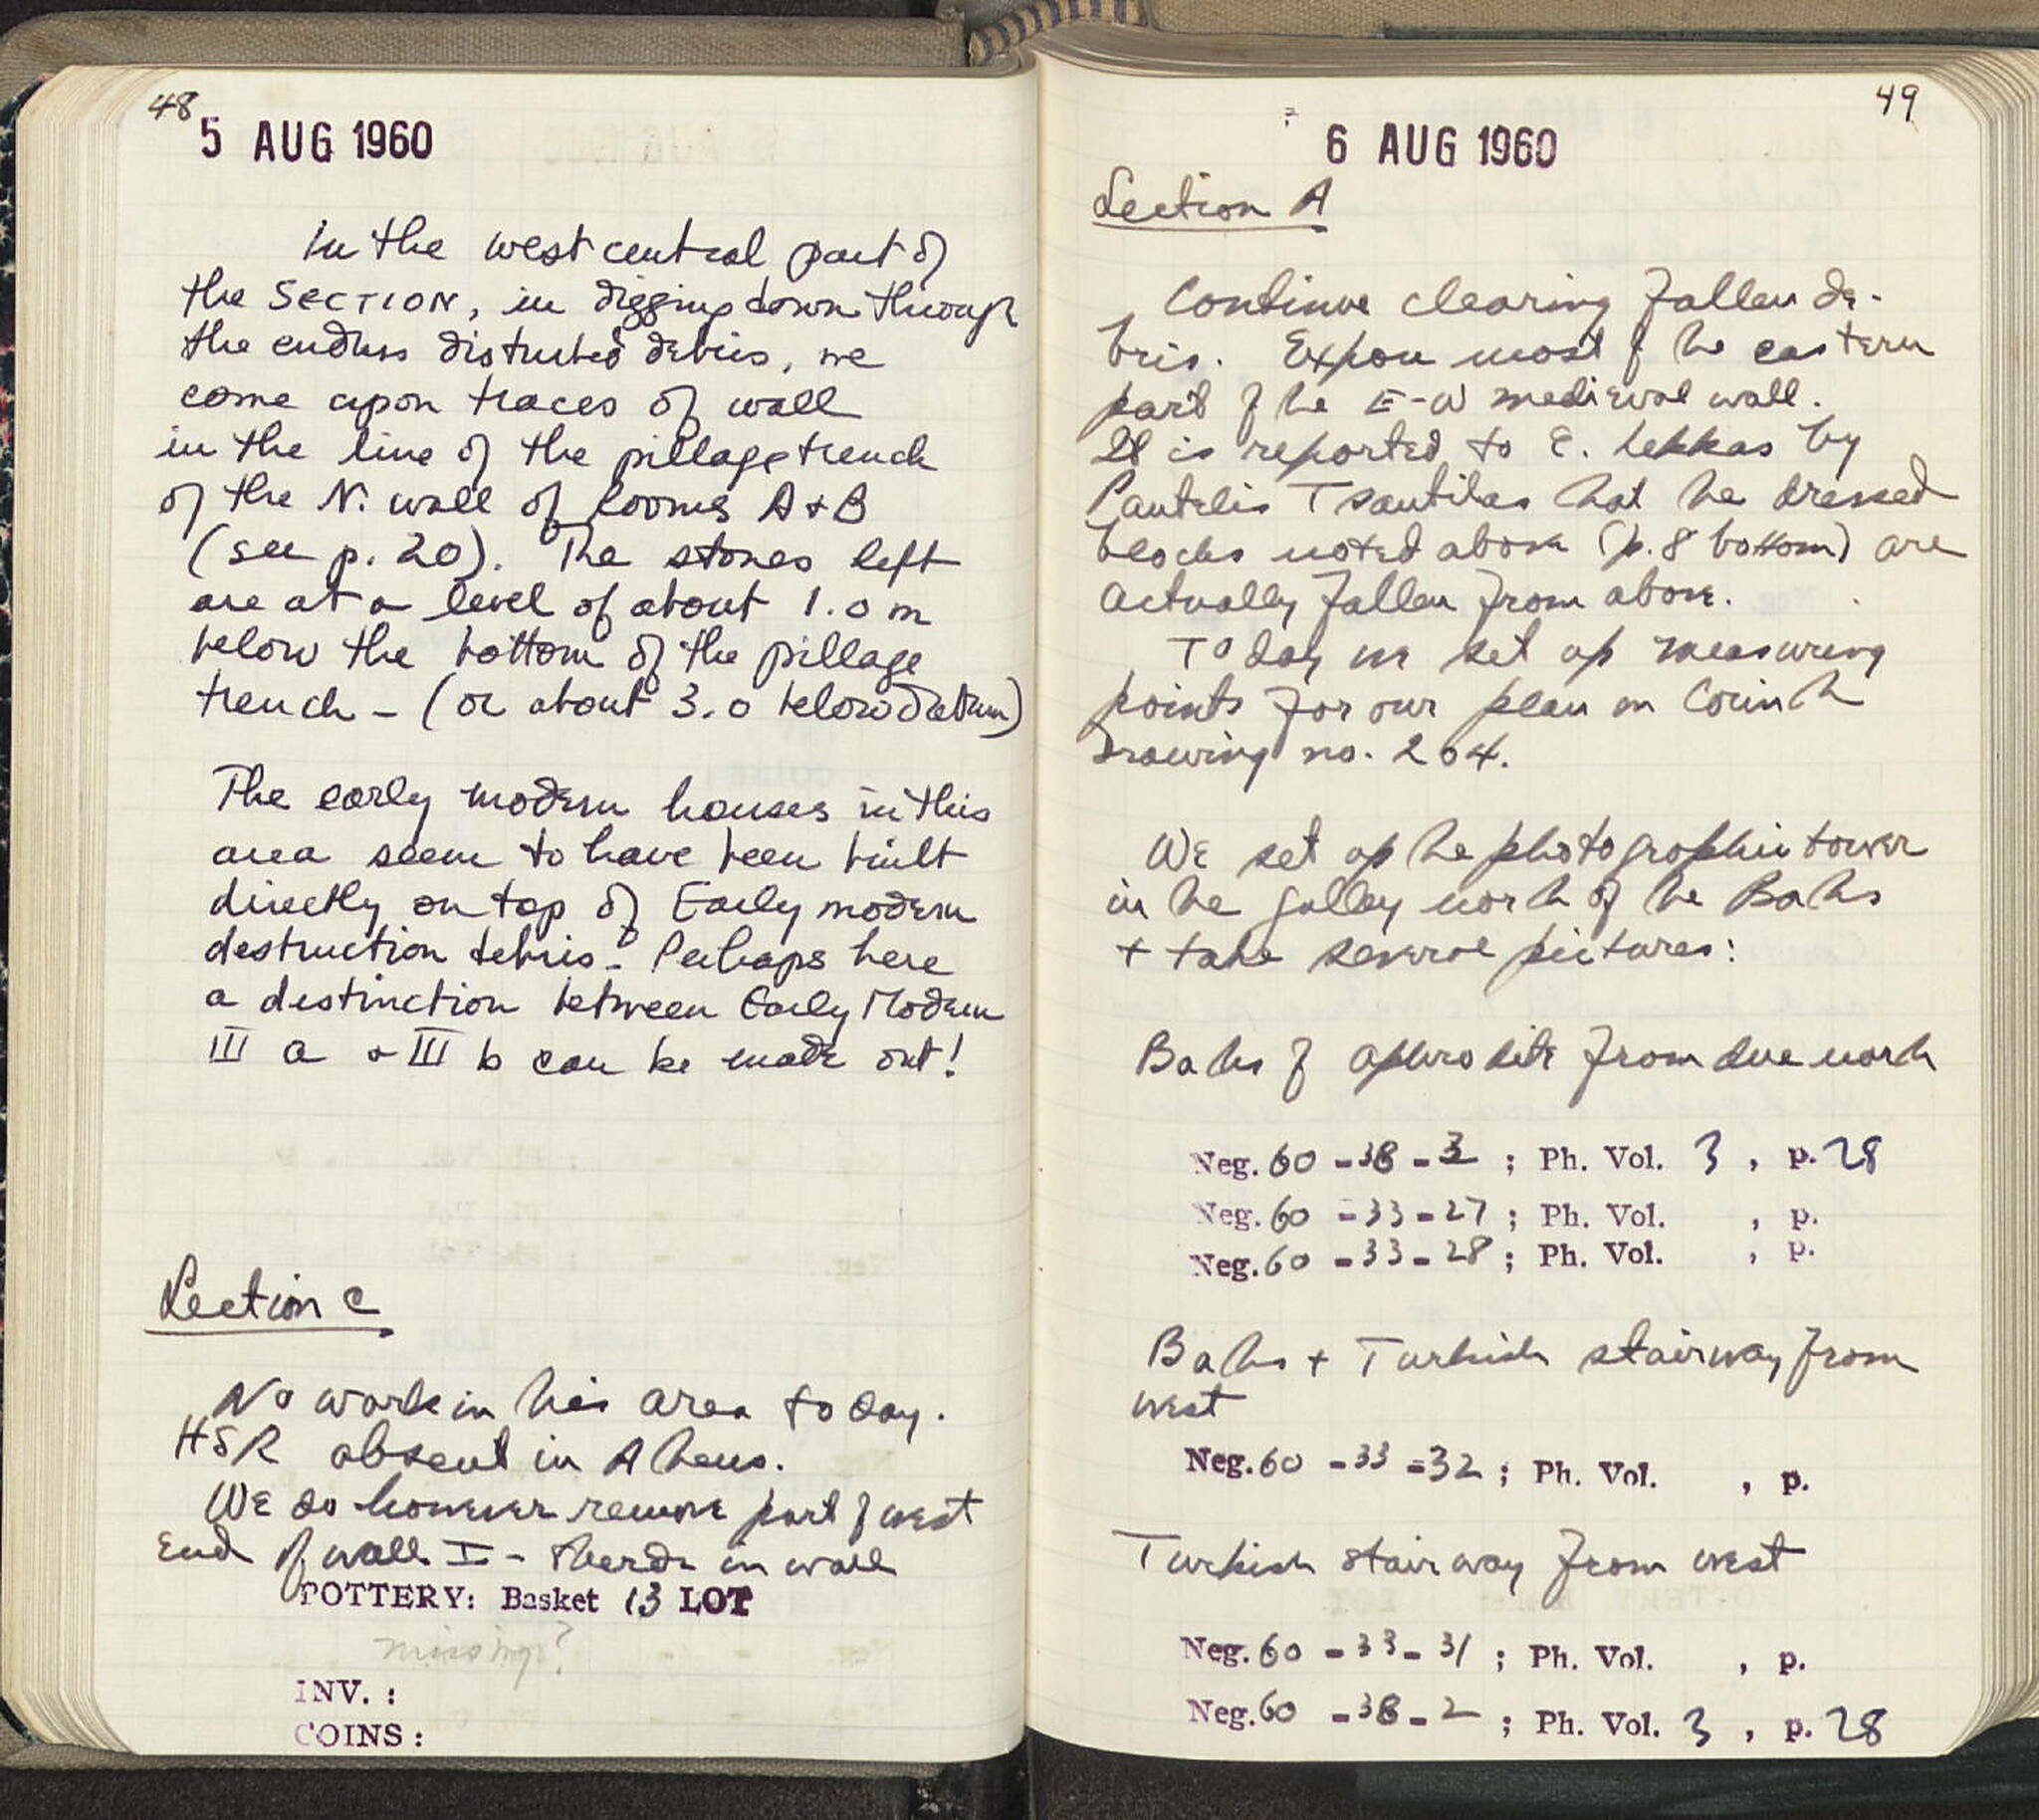 48
5 AUG 1960
In the west central part of
the SECTION, in digging down through
the endless disturbed debris, we
come upon traces of wall
in the line of the pillage trench
of the N. wall of Rooms A + B
(see p. 20). The stones left
are at a level of about 1.0 m
below the bottom of the pillage
trench - (or about 3.0 below datum)
The early modern houses in this
area seem to have been built
directly on top of Early modern
destruction debris - Perhaps here
a distinction between Early Modern
III a + III b can be made out!
Section C
No work in this area today.
HSR absent in Athens.
We do however remove part of west
End of wall I - sherds in wall
POTTERY: Basket 13 LOT
missing?
INV. :
COINS :
49
6 AUG 1960
Section A
Continue clearing fallen de-
bris. Expose most of the eastern
part of the E-W medieval wall.
It is reported to E. Lekkas by
Pantelis Tsantilas that the dressed
blocks noted above (p. 8 bottom) are
actually fallen from above.
Today we set up measuring
points for our plan on Corinth
Drawing no. 204.
We set up the photographic tower
in the gulley north of the Baths
+ take several pictures:
Baths of Aphrodite from due north
Neg. 60 - 38 - 3 ; Ph. Vol. 3 , p. 28
Neg. 60 - 33 - 27 ; Ph. Vol. , p.
Neg. 60 - 33 - 28 ; Ph. Vol. , p.
Baths + Turkish stairway from
west
Neg. 60 - 33 - 32 ; Ph. Vol. , p.
Turkish stairway from west
Neg. 60 - 33 - 31 ; Ph. Vol. , p.
Neg. 60 - 38 - 2 ; Ph. Vol. 3 , p. 28